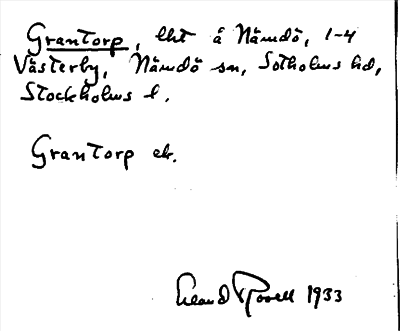 Grantorp, lht å Nämdö, 1-4
Västerby, Nämdö sn, Sotholms hd,
Stockholms l.
Grantorp ek.
Erland Rosell 1933